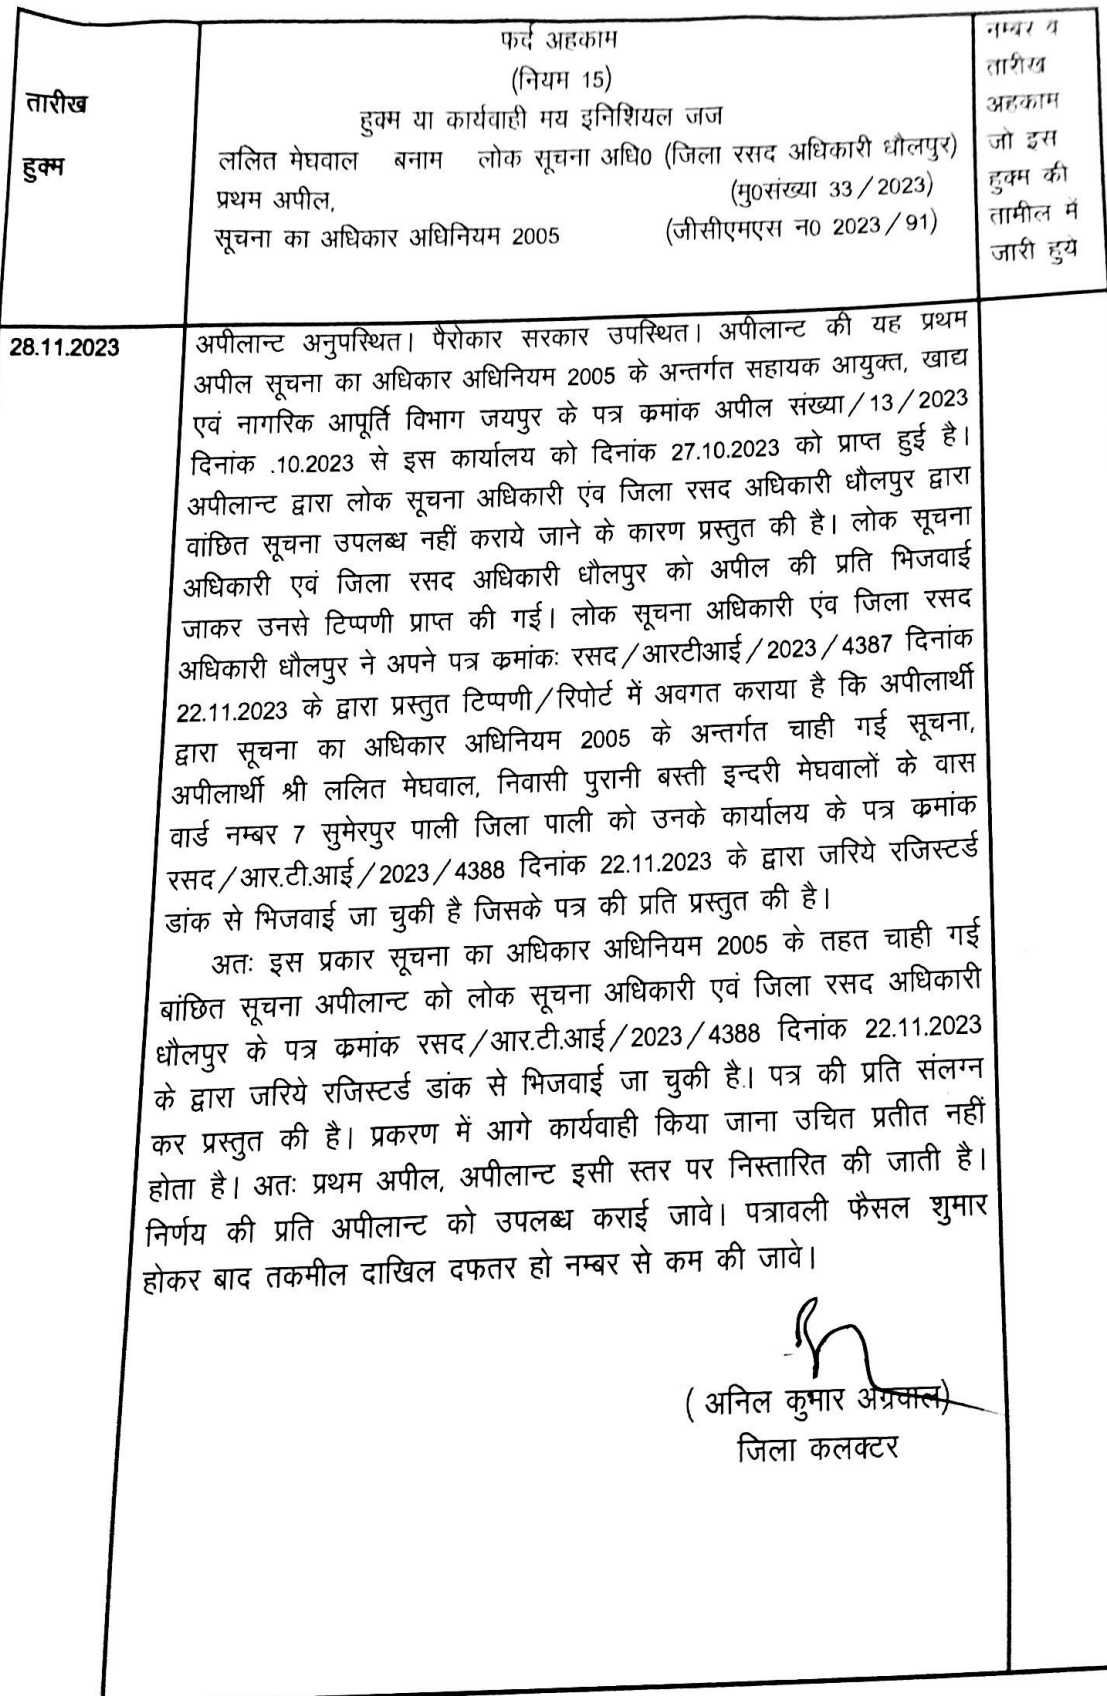 तारीख
हुक्म
फर्द अहकाम
(नियम 15)
हुक्म या कार्यवाही मय इनिशियल जज
ललित मेघवाल बनाम लोक सूचना अधि0 (जिला रसद अधिकारी धौलपुर)
प्रथम अपील, (मु0संख्या 33/2023)
सूचना का अधिकार अधिनियम 2005 (जीसीएमएस न0 2023/91)
नम्बर व
तारीख
अहकाम
जो इस
हुक्म की
तामील में
जारी हुये
28.11.2023
अपीलान्ट अनुपस्थित। पैरोकार सरकार उपस्थित। अपीलान्ट की यह प्रथम
अपील सूचना का अधिकार अधिनियम 2005 के अन्तर्गत सहायक आयुक्त, खाद्य
एवं नागरिक आपूर्ति विभाग जयपुर के पत्र क्रमांक अपील संख्या/13/2023
दिनांक .10.2023 से इस कार्यालय को दिनांक 27.10.2023 को प्राप्त हुई है।
अपीलान्ट द्वारा लोक सूचना अधिकारी एंव जिला रसद अधिकारी धौलपुर द्वारा
वांछित सूचना उपलब्ध नहीं कराये जाने के कारण प्रस्तुत की है। लोक सूचना
अधिकारी एवं जिला रसद अधिकारी धौलपुर को अपील की प्रति भिजवाई
जाकर उनसे टिप्पणी प्राप्त की गई। लोक सूचना अधिकारी एंव जिला रसद
अधिकारी धौलपुर ने अपने पत्र क्रमांकः रसद/आरटीआई/2023/4387 दिनांक
22.11.2023 के द्वारा प्रस्तुत टिप्पणी/रिपोर्ट में अवगत कराया है कि अपीलार्थी
द्वारा सूचना का अधिकार अधिनियम 2005 के अन्तर्गत चाही गई सूचना,
अपीलार्थी श्री ललित मेघवाल, निवासी पुरानी बस्ती इन्दरी मेघवालों के वास
वार्ड नम्बर 7 सुमेरपुर पाली जिला पाली को उनके कार्यालय के पत्र क्रमांक
रसद/आर.टी.आई/2023/4388 दिनांक 22.11.2023 के द्वारा जरिये रजिस्टर्ड
डांक से भिजवाई जा चुकी है जिसके पत्र की प्रति प्रस्तुत की है।
अतः इस प्रकार सूचना का अधिकार अधिनियम 2005 के तहत चाही गई
बांछित सूचना अपीलान्ट को लोक सूचना अधिकारी एवं जिला रसद अधिकारी
धौलपुर के पत्र क्रमांक रसद/आर.टी.आई/2023/4388 दिनांक 22.11.2023
के द्वारा जरिये रजिस्टर्ड डांक से भिजवाई जा चुकी है। पत्र की प्रति संलग्न
कर प्रस्तुत की है। प्रकरण में आगे कार्यवाही किया जाना उचित प्रतीत नहीं
होता है। अतः प्रथम अपील, अपीलान्ट इसी स्तर पर निस्तारित की जाती है।
निर्णय की प्रति अपीलान्ट को उपलब्ध कराई जावे। पत्रावली फैसल शुमार
होकर बाद तकमील दाखिल दफतर हो नम्बर से कम की जावे।
( अनिल कुमार अग्रवाल)
जिला कलक्टर